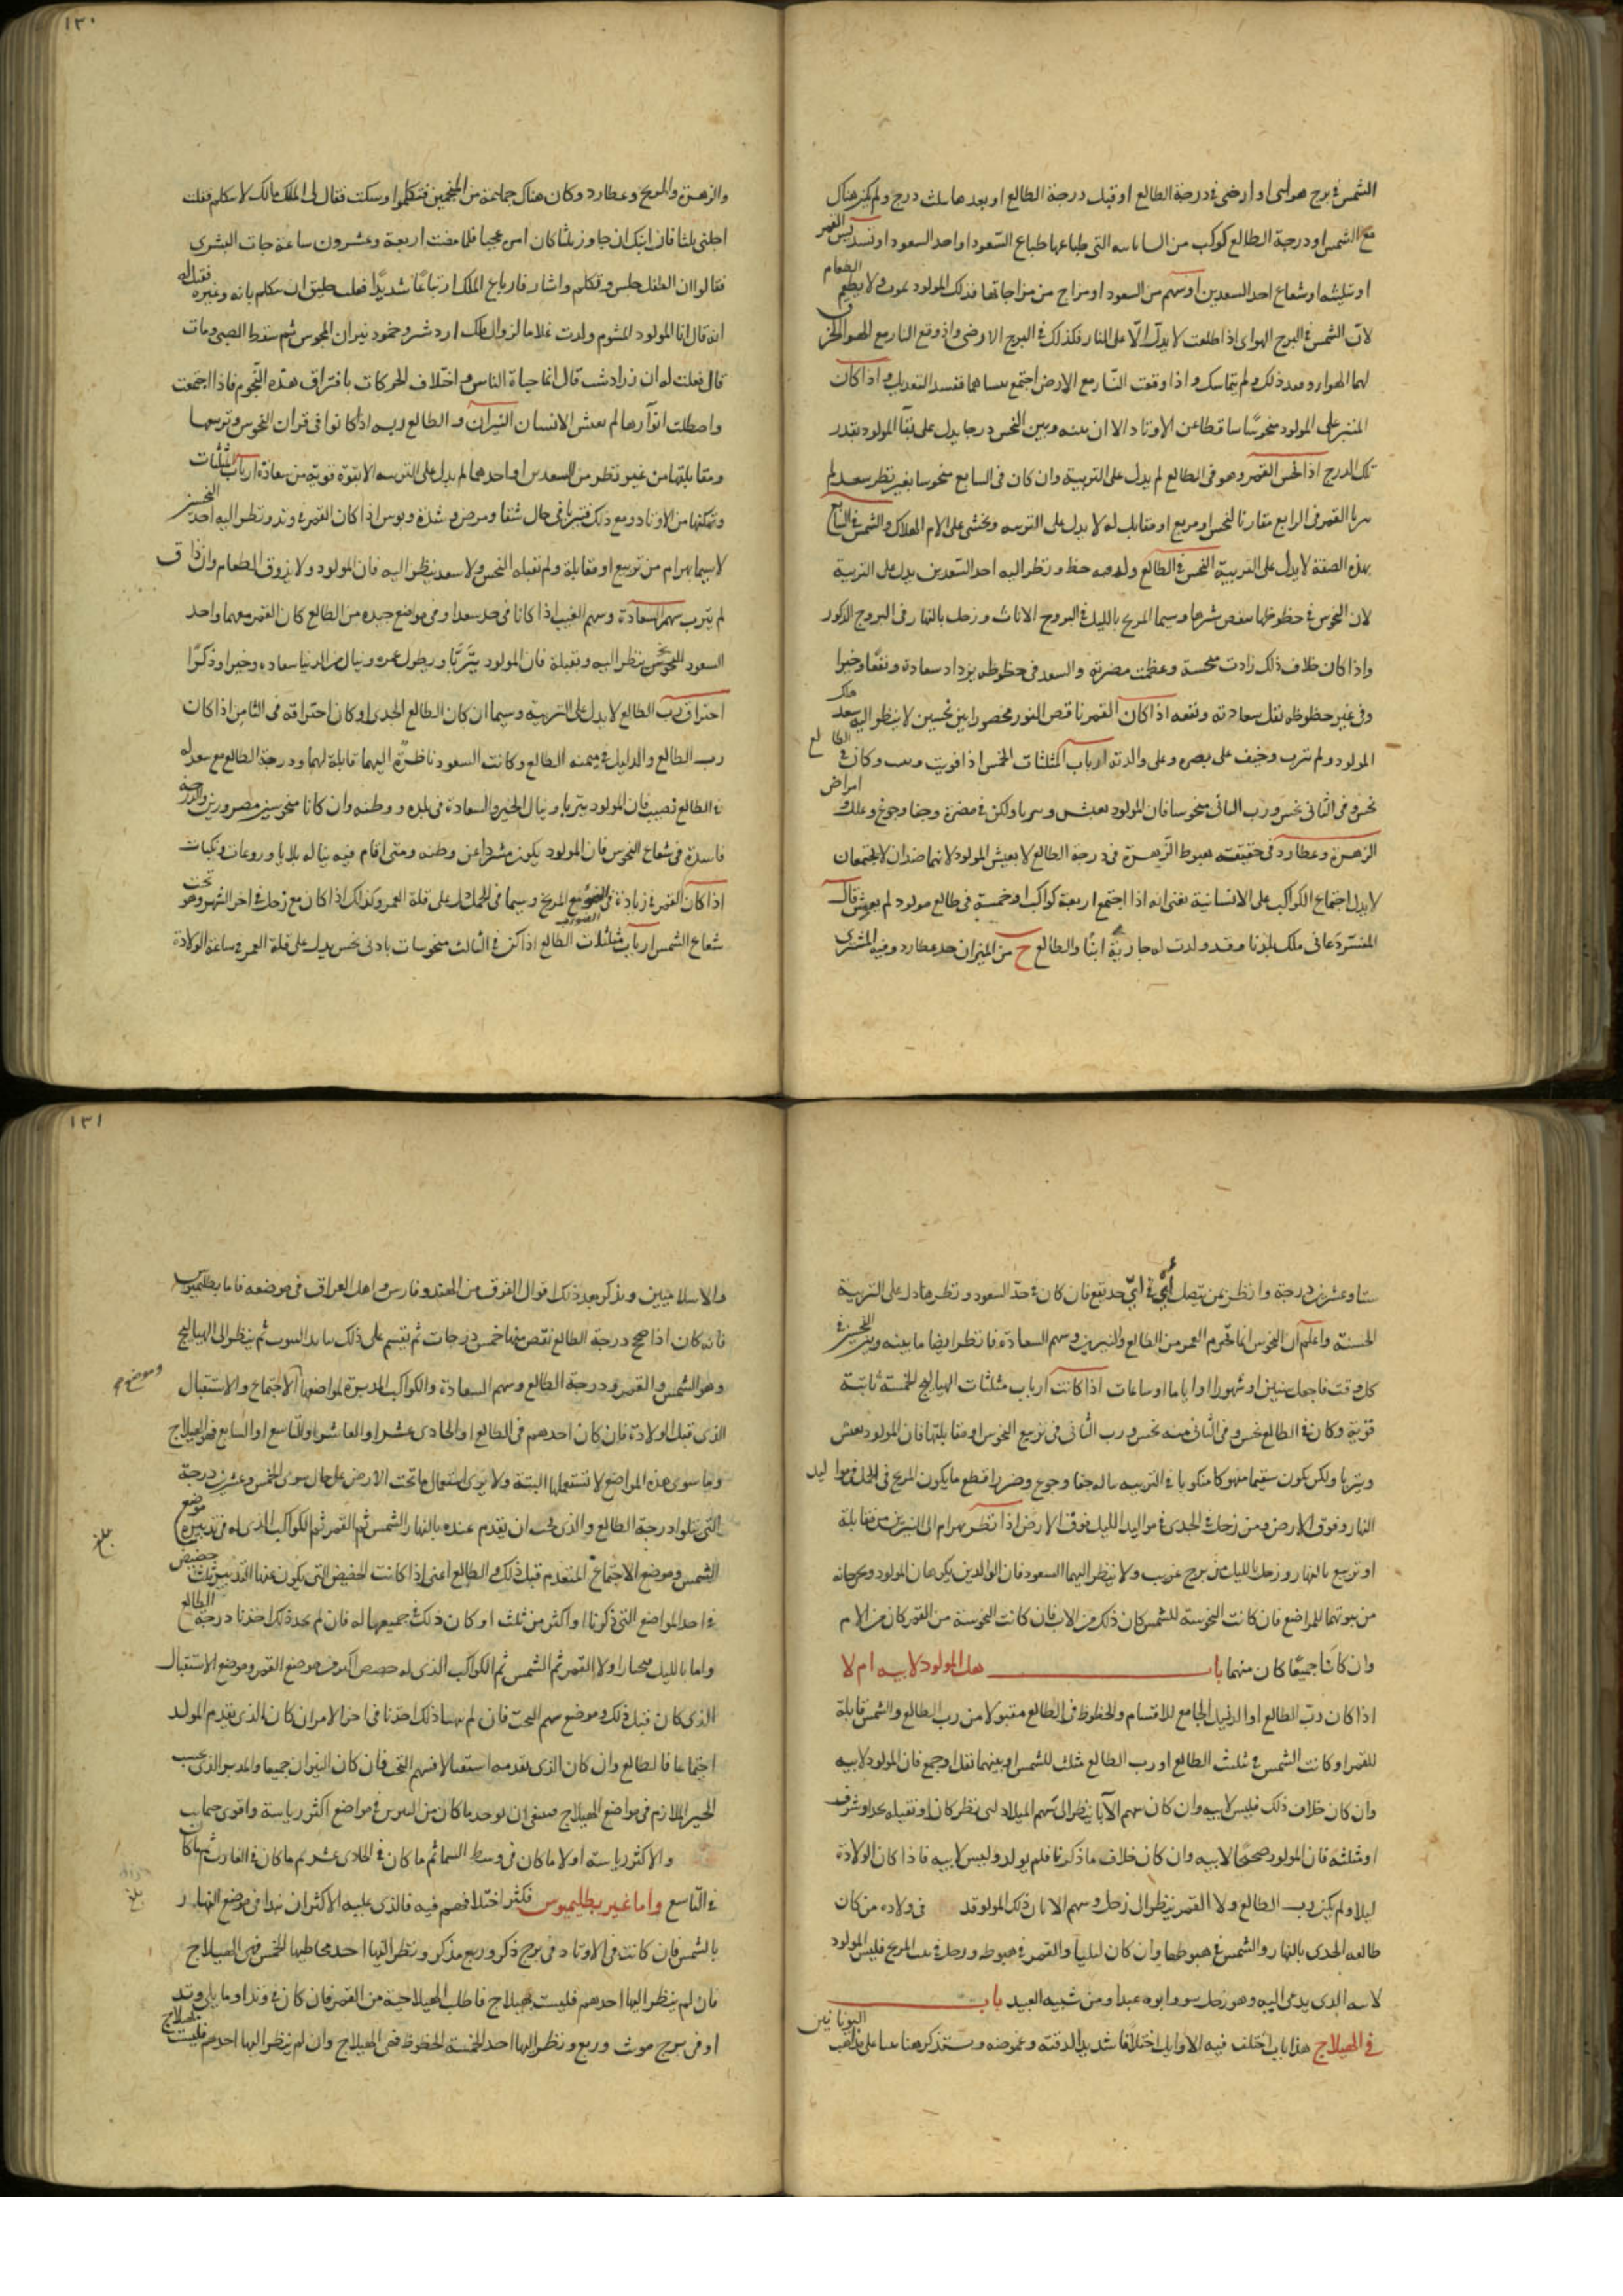 الشمس في برج هوائي او ارضي في درجة الطالع او قبل درجة الطالع او بعدها بثلث درج ولم يكن هناك
مع الشمس او درجة الطالع كوكب من التى طباعها طباع السعود او احد السعود او تسديس القمر
او تثليثه او شعاع احد السعدين او سهم من السعود او مزاج من مزاجاتها فذلك المولود يموت ولا يطعم الطعام
لان الشمس في البرج الهوائى اذا طلعت لا يدل الا على النار فكذلك في البرج الارضى واذ وقع النار مع الهواء
لهما الهوا وبعد ذلك ولم يتماسك واذا وقعت النار مع الارض اجتمع ففسد التعديل واذا كان
المشترى على المولود منحوسا ساقطا عن الاوتاد الا ان بينه وبين النحس درجا يدل على بقا المولود بقدر
تلك الدرج اذا نحس القمر وهو فى الطالع لم يدل على التربية وان كان فى السابع منحوسا بغير نظر سعد لم
القمر فى الرابع مقارنا لنحس او مربع او مقابل له لا يدل على التربيه ويخشى على الام الهلاك والشمس في السابع
بهذه الصفة لا يدل على التربية النحس في الطالع وله فيه حظ ونظر اليه احد السعدين يدل على التربية
لان النحوس في حظوظها ينقص شرها وسيما المريخ بالليل في البروج الاناث وزحل بالنهار فى البروج الذكور
واذا كان خلاف ذلك زادت منحسة وعظمت مضرته والسعد فى حظوظه يزداد سعادة ونفعا وخيرا
وفى غير حظوظه تقل سعادته ونفعه اذا كان القمر ناقص النور محصورا بين نحسين لا ينظر اليه سعد هلك
المولود ولم يترب وخيف على بصره وعلى والدته ارباب المثلثات الخمس اذا قويت وكان في الطالع
نحس وفى الثانى نحس ورب الثانى منحوسا فان المولود يعيش ويربا ولكن في مضرة وجفا وجوع وعلل وامراض
الزهرة وعطارد فى حقيقة هبوط الزهرة فى درجة الطالع لا يعيش المولود لانهما ضدان لا يجتمعان
لا يدل اجتماع الكواكب على الانسانية يعنى انه اذا اجتمع اربعة كواكب او خمسة فى طالع مولود لم يعيش قال
المفسر دعانى ملك بلدنا وقد ولدت له جارية ابنا والطالع ح من الميزان حد عطارد وفيه المشترى
١٣٠
والزهرة والمريخ وعطارد وكان هناك جماعة من المنجمين فتكلموا وسكت فقال لى الملك مالك لا تتكلم فقلت
اجلنى ثلثا فان ابنك ان جاوز ثلثا كان امره عجبا فلما مضت اربعة وعشرون ساعة جات البشرى
فقالوا ان الطفل جلس وتكلم واشار فارتاع الملك ارتياعا شديدا فقلت خليق ان يتكلم بانه وغيره فقيل له
انه قال انا المولود المشوم ولدت غلاما لزوال ملك اردشير وخمود نيران المجوس ثم سقط الصبى ومات
قال فقلت له ان زرادشت قال انما حياة الناس واختلاف الحركات بافتراق هذه النجوم فاذا اجتمعت
واصطكت انوارها لم يعش الانسان النيران والطالع وربه اذا كانوا فى قران النحوس وتربيعها
ومقابلتها من غير نظر من السعدين او احدهما لم يدل على التربيه الا بقوة قوية من سعادة ارباب المثلثات
وتمكنها من الاوتاد ومع ذلك فيتربا فى حال شقا ومرض وشدة وبوس اذا كان القمر في وتد ونظر اليه احد النحسين
لا سيما بهرام من تربيع او مقابلة ولم تقبله النحس ولا سعد ينظر اليه فان المولود ولا يذوق الطعام وان ذاق
لم يترب سهم السعادة وسهم الغيب اذا كانا فى حد سعد او فى مواضع جيده من الطالع كان القمر معهما واحد
السعود ينظر اليه ويقبله فان المولود يتربا ويطول عمره وينال من الدنيا سعاده وخيرا وذكرا
احتراق رب الطالع لا يدل على التربيه وسيما ان كان الطالع الجدى او كان احتراقه فى الثامن اذا كان
رب الطالع والدليل في ميمنه الطالع وكانت السعود ناظرة اليهما قابلة لهما ودرجة الطالع مع سعد له
في الطالع نصيب فان المولود يتربا وينال الخير والسعادة فى بلده ووطنه وان كانا منحوسين مضرورين والدرجة
فاسدة فى شعاع النحوس فان المولود يكون مشردا عن وطنه ومتى اقام فيه يناله بلايا وروعات ونكبات
اذا كان القمر في زيادة فى الضو مع المريخ وسيما فى الحمل دل على قلة العمر وكذلك اذا كان مع زحل في اخر الشهر وهو تحت
شعاع الشمس ارباب مثلثات الطالع اذا كن في الثالث منحوسات بادنى نحس يدل على قلة العمر في ساعة الولادة
ستا وعشرين درجة وانظر بمن يتصل في اى حد يقع فان كان في حد السعود ونظرها دل على التربية
الحسنة واعلم ان النحوس انما تخرم العمر من الطالع والنيرين وسهم السعادة فانظر ايضا ما بينه وبين النحس في
كل وقت فاجعل سنين او شهورا او اياما او ساعات اذا كانت ارباب مثلثات الهيالج الخمسة ثابتة
قوية وكان في الطالع نحس وفى الثانى منه نحس ورب الثانى فى تربيع النحوس او مقابلتها فان المولود يعش
ويتربا ولكن يكون سقيما منهوكا منكوبا في التربيه يناله جفا وجوع وضر واقطع ما يكون المريخ فى الحمل في مواليد
النهار وفوق الارض ومن زحل في الجدى في مواليد الليل فوق الارض اذا نظر بهرام الى النيرين من مقابلة
او تربيع بالنهار وزحل بالليل من برج غريب ولا ينظر اليهما السعود فان الوالدين يكرهان المولود ويخرجانه
من بيوتهما للمراضع فان كانت النحوسة للشمس كان ذلك من الاب فان كانت النحوسة من القمر كان من الام
وان كانا جميعا كان منهما باب هل المولود لابيه ام لا
اذا كان رب الطالع او الدليل الجامع للاقسام والحظوظ فى الطالع مقبولا من رب الطالع والشمس قابلة
للقمر او كانت الشمس في مثلث الطالع او رب الطالع مثلث للشمس او بينهما نقل او جمع فان المولود لابيه
وان كان خلاف ذلك فليس لابيه وان كان سهم الآبا ينظر الى سهم الميلاد اى نظر كان او تقبله
او مثلثه فان المولود صحيحا لابيه وان كان خلاف ما ذكرنا فلم يولد وليس لابيه فاذا كان الولادة
ليلا ولم يكن رب الطالع ولا القمر ينظر الى زحل وسهم الابا كان ذلك المولود قد فى ولاده من كان
طالعه الجدى بالنهار والشمس في هبوطها وان كان ليليا والقمر في هبوط وزحل في بيت المريخ فليس المولود
لابيه الذى يدعى اليه وهو زحل وابوه عبدا ومن شبيه العبيد باب
في الهيلاج هذا باب اختلف فيه الاوايل اختلافا شديدا لدقته وغموضه وسنذكر هنا على مذاهب اليونانيين
١٣١
والاسلاميين ونذكر بعد ذلك اقوال الفرق من الهند وفارس واهل العراق فى موضعه فاما بطلميوس
فانه كان اذا صحح درجة الطالع نقص منها خمس درجات ثم يقيم على ذلك البيوت ثم ينظر الى الهيالج
وهو الشمس والقمر ودرجة الطالع وسهم السعادة والكواكب المدبرة لمواضعها الاجتماع والاستقبال
الذى قبل الولادة فان كان احدهم فى الطالع او الحادى عشر او العاشر او التاسع او السابع فهو الهيلاج
وما سوى هذه المواضع لا تستعملها البتة ولا يرى استعمال ما تحت الارض على حال سوى الخمس وعشرين درجة
التى تتلو درجة الطالع والذى يجب ان يقدم عنده بالنهار الشمس ثم القمر ثم الكواكب الذى له فى تدبير موضع
الشمس وموضع الاجتماع المتقدم قبل ذلك والطالع اعنى اذا كانت الحصص التى يكون عنها التدبير ثلث حصص
في احد المواضع التى ذكرنا او اكثر من ثلث او كان ذلك في جميعها له فان لم نجد ذلك اخذنا درجة الطالع
واما بالليل فيختار اولا القمر ثم الشمس ثم الكواكب الذى له حصص اكثر فى موضع القمر وموضع الاستقبال
الذى كان قبل ذلك وموضع سهم البخت فان لم ذلك اخذنا فى اخر الامر ان كان الذى يقدم المولد
اجتماعا فالطالع وان كان الذى تقدمه استقبالا فسهم البخت فان كان النيران جميعا والمدبر الذى يجب
الحيز الملازم فى مواضع الهيلاج فينبغى ان يوخذ ما كان من النيرين في مواضع اكثر رياسة واقوى
والاكثر رياسة اولا ما كان فى وسط السما ثم ما كان في الحادى عشر ثم ما كان في الغارب ثم ما كان
في التاسع واما غير بطلميوس فكثر اختلافهم فيه فالذى عليه الاكثر ان نبدا فى موضع النهار
بالشمس فان كانت فى الاوتاد فى برج ذكر وربع مذكر ونظر اليها احد الخمس فهى الهيلاج
فان لم ينظر اليها احدهم فليست بهيلاج فاطلب الهيلاجية من القمر فان كان في وتد او ما يلى وتد
او فى برج موث وربع ونظر اليها احد الخمسة الحظوظ فهى الهيلاج وان لم ينظر اليها احدهم فليست بهيلاج